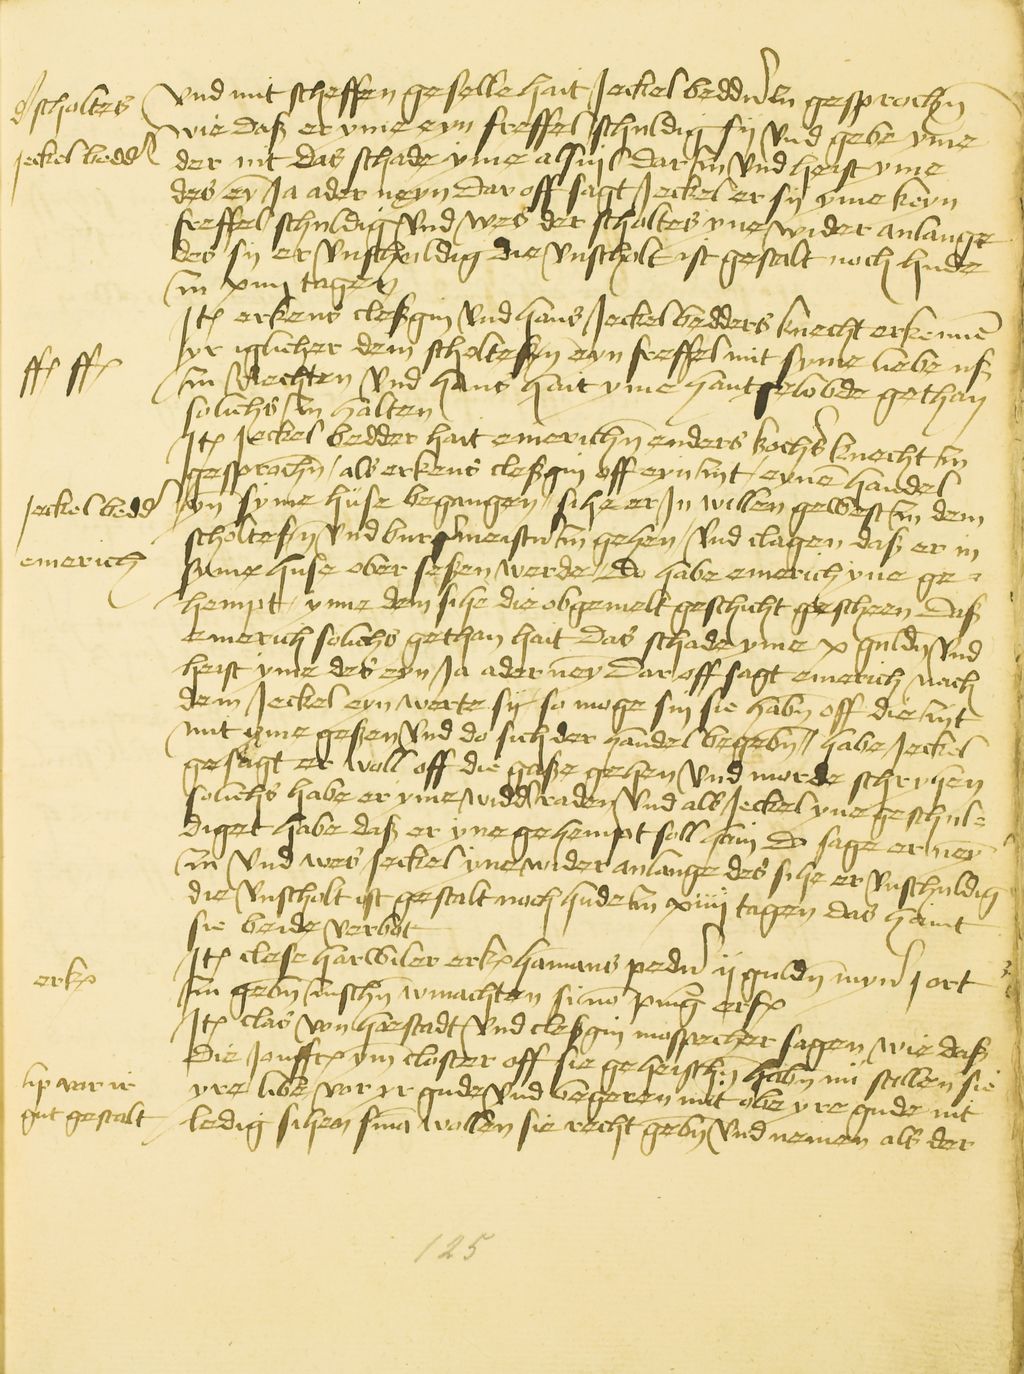 d scholtes
Jeckel bedd
Und mit scheffen geselle hait Jeckel beddern gesprochn
wie daß er yme eyn freffel schuldig sij Und gebe yme
der nit das schade yme als vil dar zu Und heist yme
des ey Ja ader neyn Dar off sagt Jeckel er sij yme keyn
freffel schuldig Und wes der scholtes yne wider anlange
des sij er Unschuldig die Unscholt ist gestalt noch hude
zu xiiij tagen
ff ff
Jt erkens cleßgin Und hans Jeckel bedders knecht erkenne
yr iglicher dem scholteßn eyn freffel mit syme liebe uß
zu Rechten Und hans hait yme hantgelobde gethan
solichs zu halten
Jeckel bedd
emerich
Jt Jeckel bedder hait emerichn enders kochs knecht zu
gesprochn als erkens cleßgin off eyn zyt eyne handel
yn syme huse begangen sihe er Jn willen gewest zu dem
scholteßn Und burgmeistn zu gehen Und clagen daß er in
syme huse ober seßen werde Do habe emerich yne ge-
hempt yme dem sihe die obgemelt geschicht gescheen Daß
emerich solichs gethan hait Das schade yme x guldn Und
heist yme des eyn Ja ader ney Dar off sagt emerich nach
dem Jeckel eyn werte sij so moge sin sie habn off die zyt
mit yme geßen Und do sich der handel begebn habe Jeckel
gesagt er woll off die gaße gehen Und morde schryhen
solichs habe er yme widd raden Und als Jeckel yne geschul-
diget habe daß er yne gehempt soll hain Do sage er ney
zu Und wes Jeckel yne wider anlange des sihe er Unschuldig
die Unscholt ist gestalt noch hude zu xiiij tagen Das haint
sie beide Verbot
erk
Jt clese harwiler erk hamans pedn ij guldn myn j ort
zu gebn zuschn winachten si no erf
lip vor ir
gut gestalt
Jt clas von hoestadt Und cleßgin mospecher sagen wie daß
die Jonffr ym closter off sie geheischn habn nu stellen sie
yre libe vor yr gude Und begeren mit obe yre gude nit
ledig sihen wollen sie recht gebn Und nemen als der
125